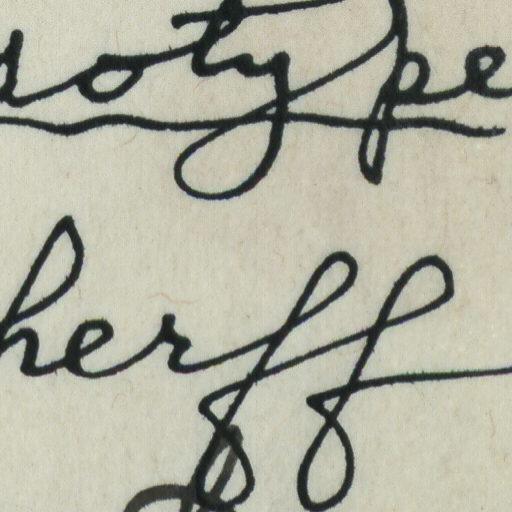 sotype
herff